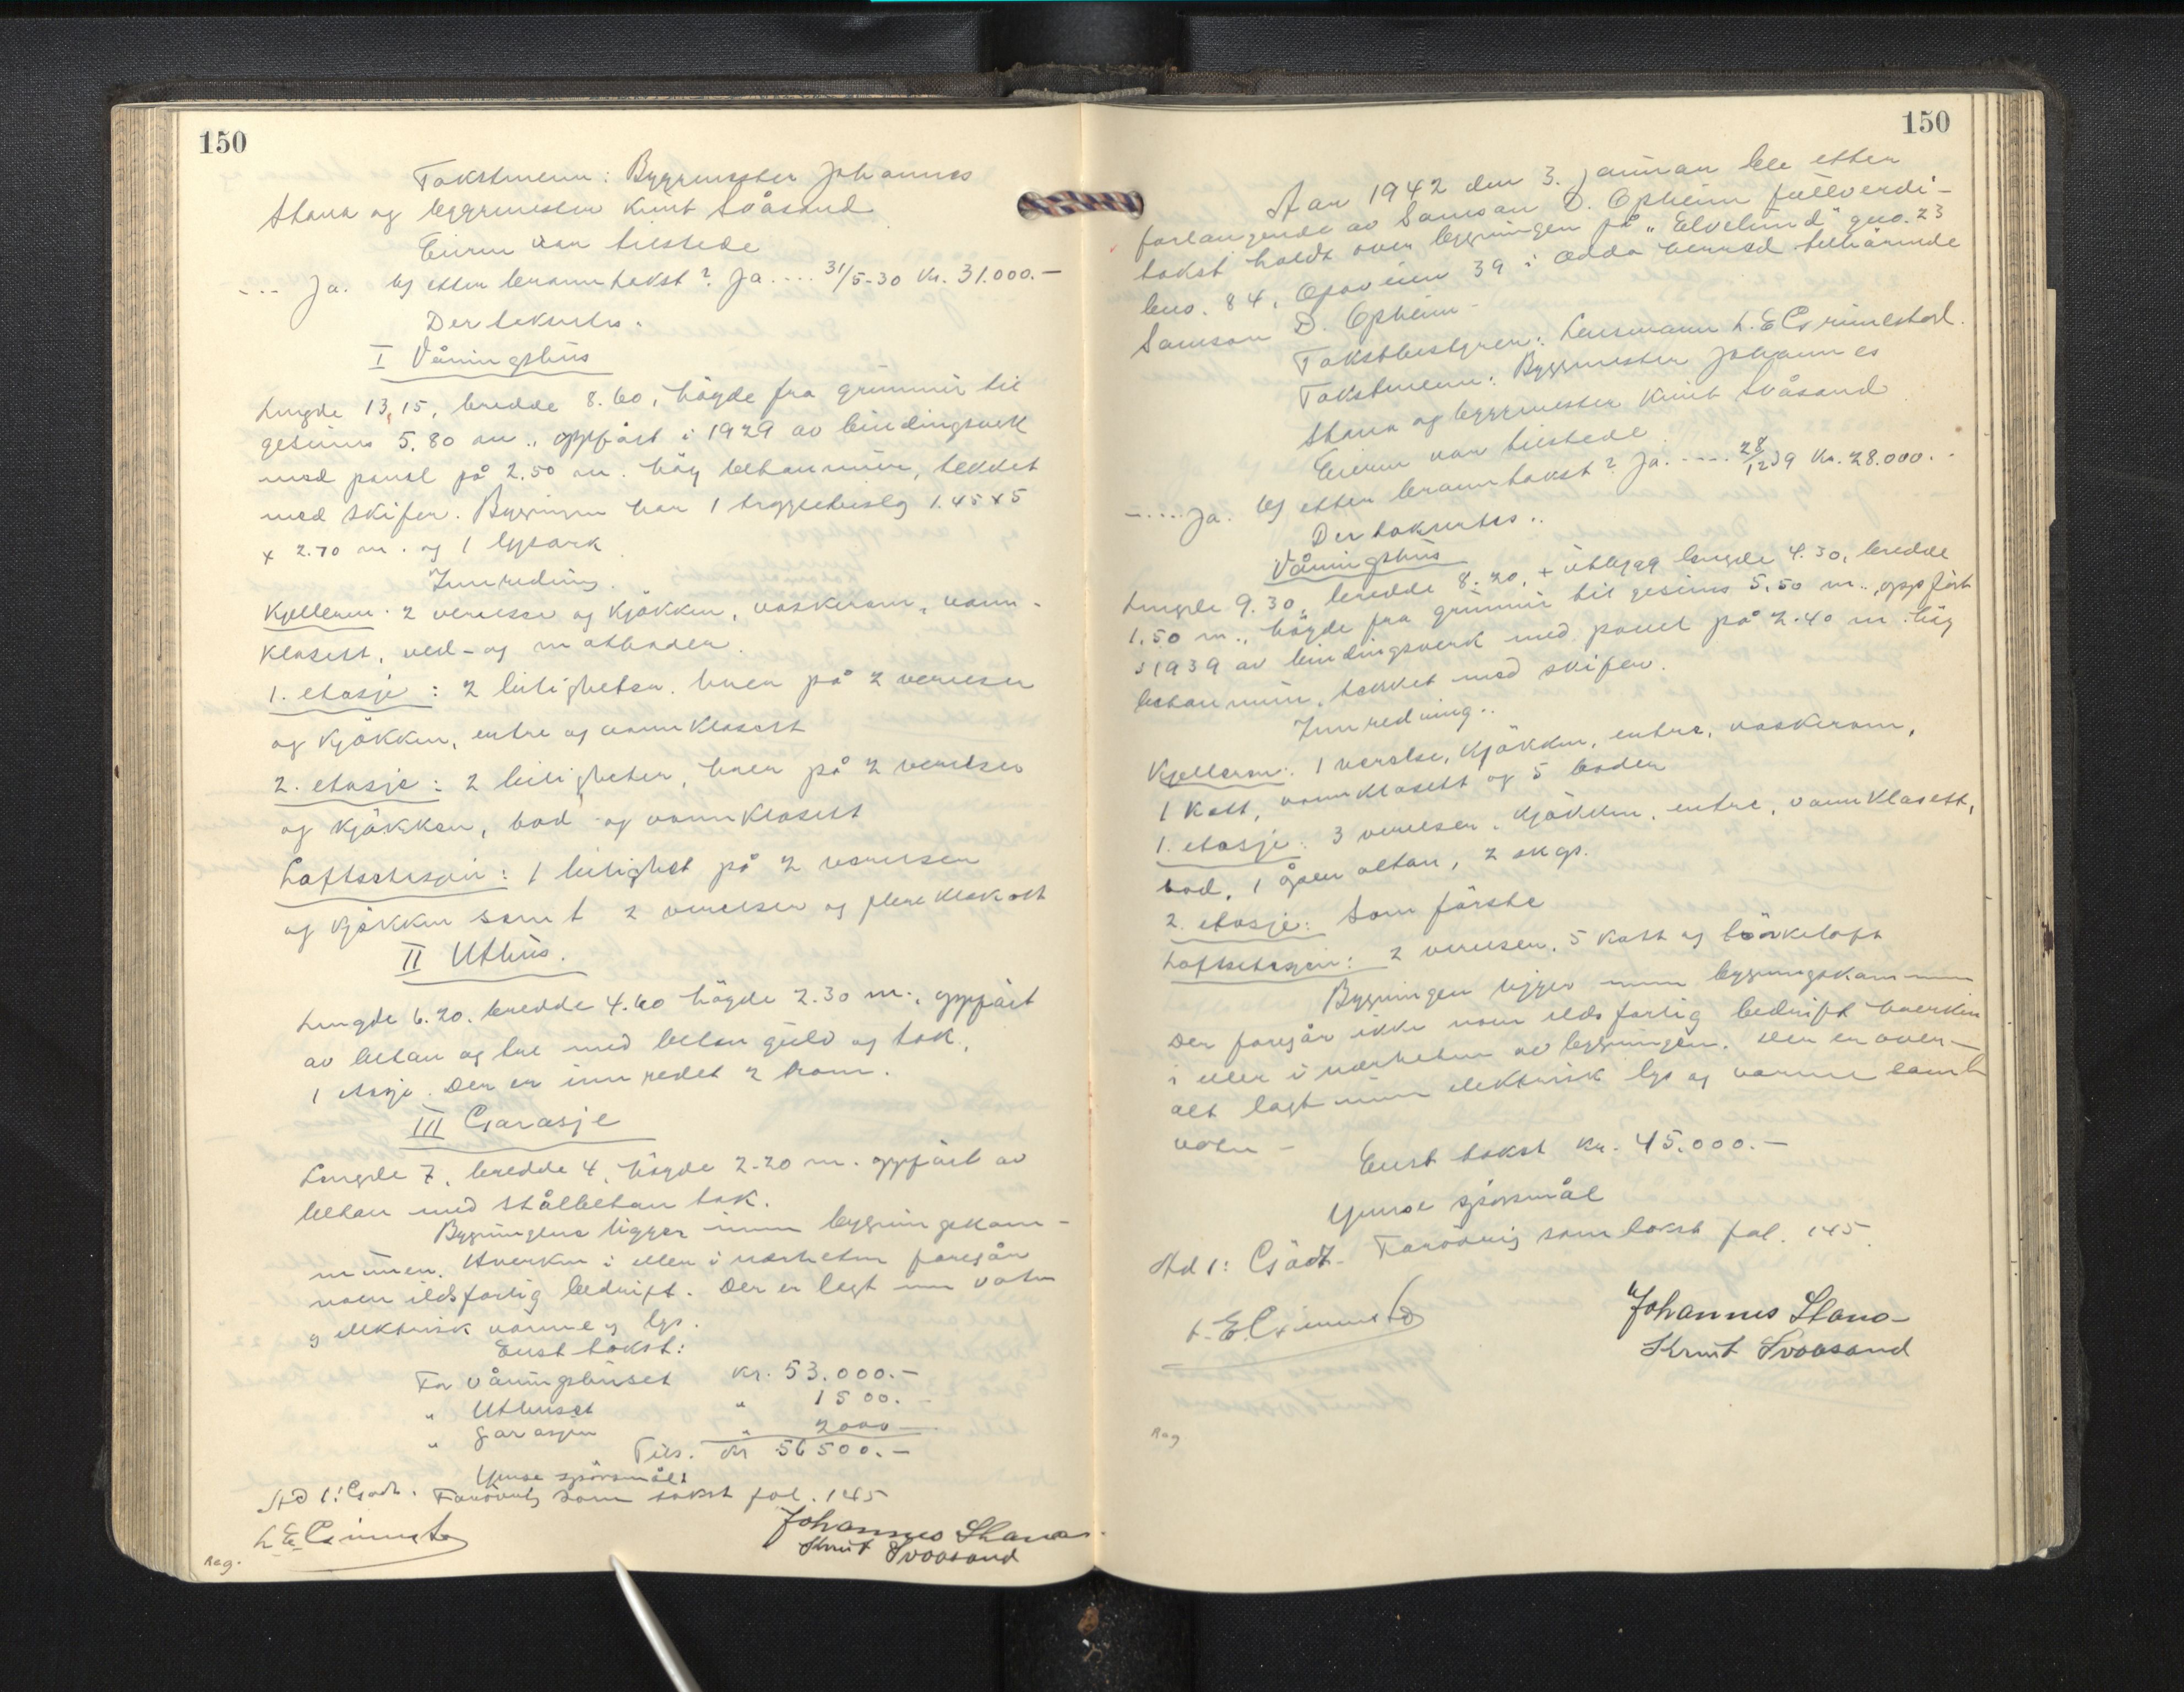 150
Takstmenn: Byggmester Johannes
Stana og byggmester Knut Svåsand
Eieren var tilstede
--- Ja. Ny etter branntakst? Ja .... 31/5-30 Kr. 31.000.-
Der takseres.
I Våningshus
Lengde 13,15, bredde 8.60, høgde fra grunnmur til
gesims 5.80 m., oppført i 1929 av bindingsverk
med panel på 2.50 m. høg betonmur, tekket
med skifer. Bygningen har 1 tryggebislag 1.45 x 5
x 2.70 m. og 1 lysark
Innredning.
Kjelleren. 2 verelser og kjøkken, vaskerom, vann-
klosett, ved- og matboder.
1. etasje: 2 leiligheter, hver på 2 verelser
og kjøkken, entre og vannklosett
2. etasje: 2 leiligheter, hver på 2 verelser
og kjøkken, bad og vannklosett
Loftsetasjen: 1 leilighet på 2 verelser
og kjøkken samt 2 verelser og flere kleskott
II Uthus.
Lengde 6.20. bredde 4.60 høgde 2.30 m., oppført
av beton og tre med beton gulv og tak.
1 etasje. Der er innredet 2 rom.
III Garasje
Lengde 7, bredde 4, høgde 2.20 m. oppført av
beton med stålbeton tak.
Bygningene ligger innen bygningskom-
munen. Hverken i eller i nærheten foregår
noen ildsfarlig bedrift. Der er lagt inn vatn
og elektrisk varme og lys.
Eust takst:
For våningshuset kr. 53.000.-
" Uthuset " 1500.-
" garasjen " 2000-
Tils. kr 56500.-
Ymse spørsmål:
Ad 1: Godt. Forøvrig som takst fol. 145
L. E. Grimestad
Johannes Stana
Knut Svaasand
Rag.
150
Aar 1942 den 3. januar ble etter
forlangende av Samson D. Opheim fullverdi-
takst holdt over bygningen på "Elvelund" gno. 23
bno. 84, Opoveien 39 i Odda herred tilhørende
Samson D. Opheim-
Takstbestyrer: Lensmann L. E Grimestad.
Takstmenn: Byggmester Johannes
Stana og byggmester Knut Svåsand
Eieren var tilstede.
-....Ja. Ny etter branntakst? Ja. .... 28/12 39 Kr. 28.000.-
Der takseres..
Våningshus
Lengde 9.30, bredde 8.20, + utbygg lengde 4.30, bredde
1.50 m., høgde fra grunnmur til gesims 5.50 m., oppført
i 1939 av bindingsverk med panel på 2.40 m. høg
betonmur, tekket med skifer.
Innredning..
Kjelleren: 1 verelse, kjøkken, entre, vaskerom,
1 kott, vannklosett og 5 boder
1. etasje: 3 verelser, kjøkken, entre, vannklosett,
bad, 1 åpen altan, 2 skap.
2. etasje: Som første
Loftsetasjen: 2 verelser, 5 kott og tørkeloft
Bygningen ligger innen bygningskommunen
Der foregår ikke noen ildsfarlig bedrift hverken
i eller i nærheten av bygningen. Der er over-
alt lagt inn elektrisk lys og varme samt
vatn -
Eust takst kr. 45.000.-
Ymse spørsmål
Ad 1: Godt. Forøvrig som takst fol. 145.
L. E. Grimestad
Johannes Stana
Knut Svaasand
Rag